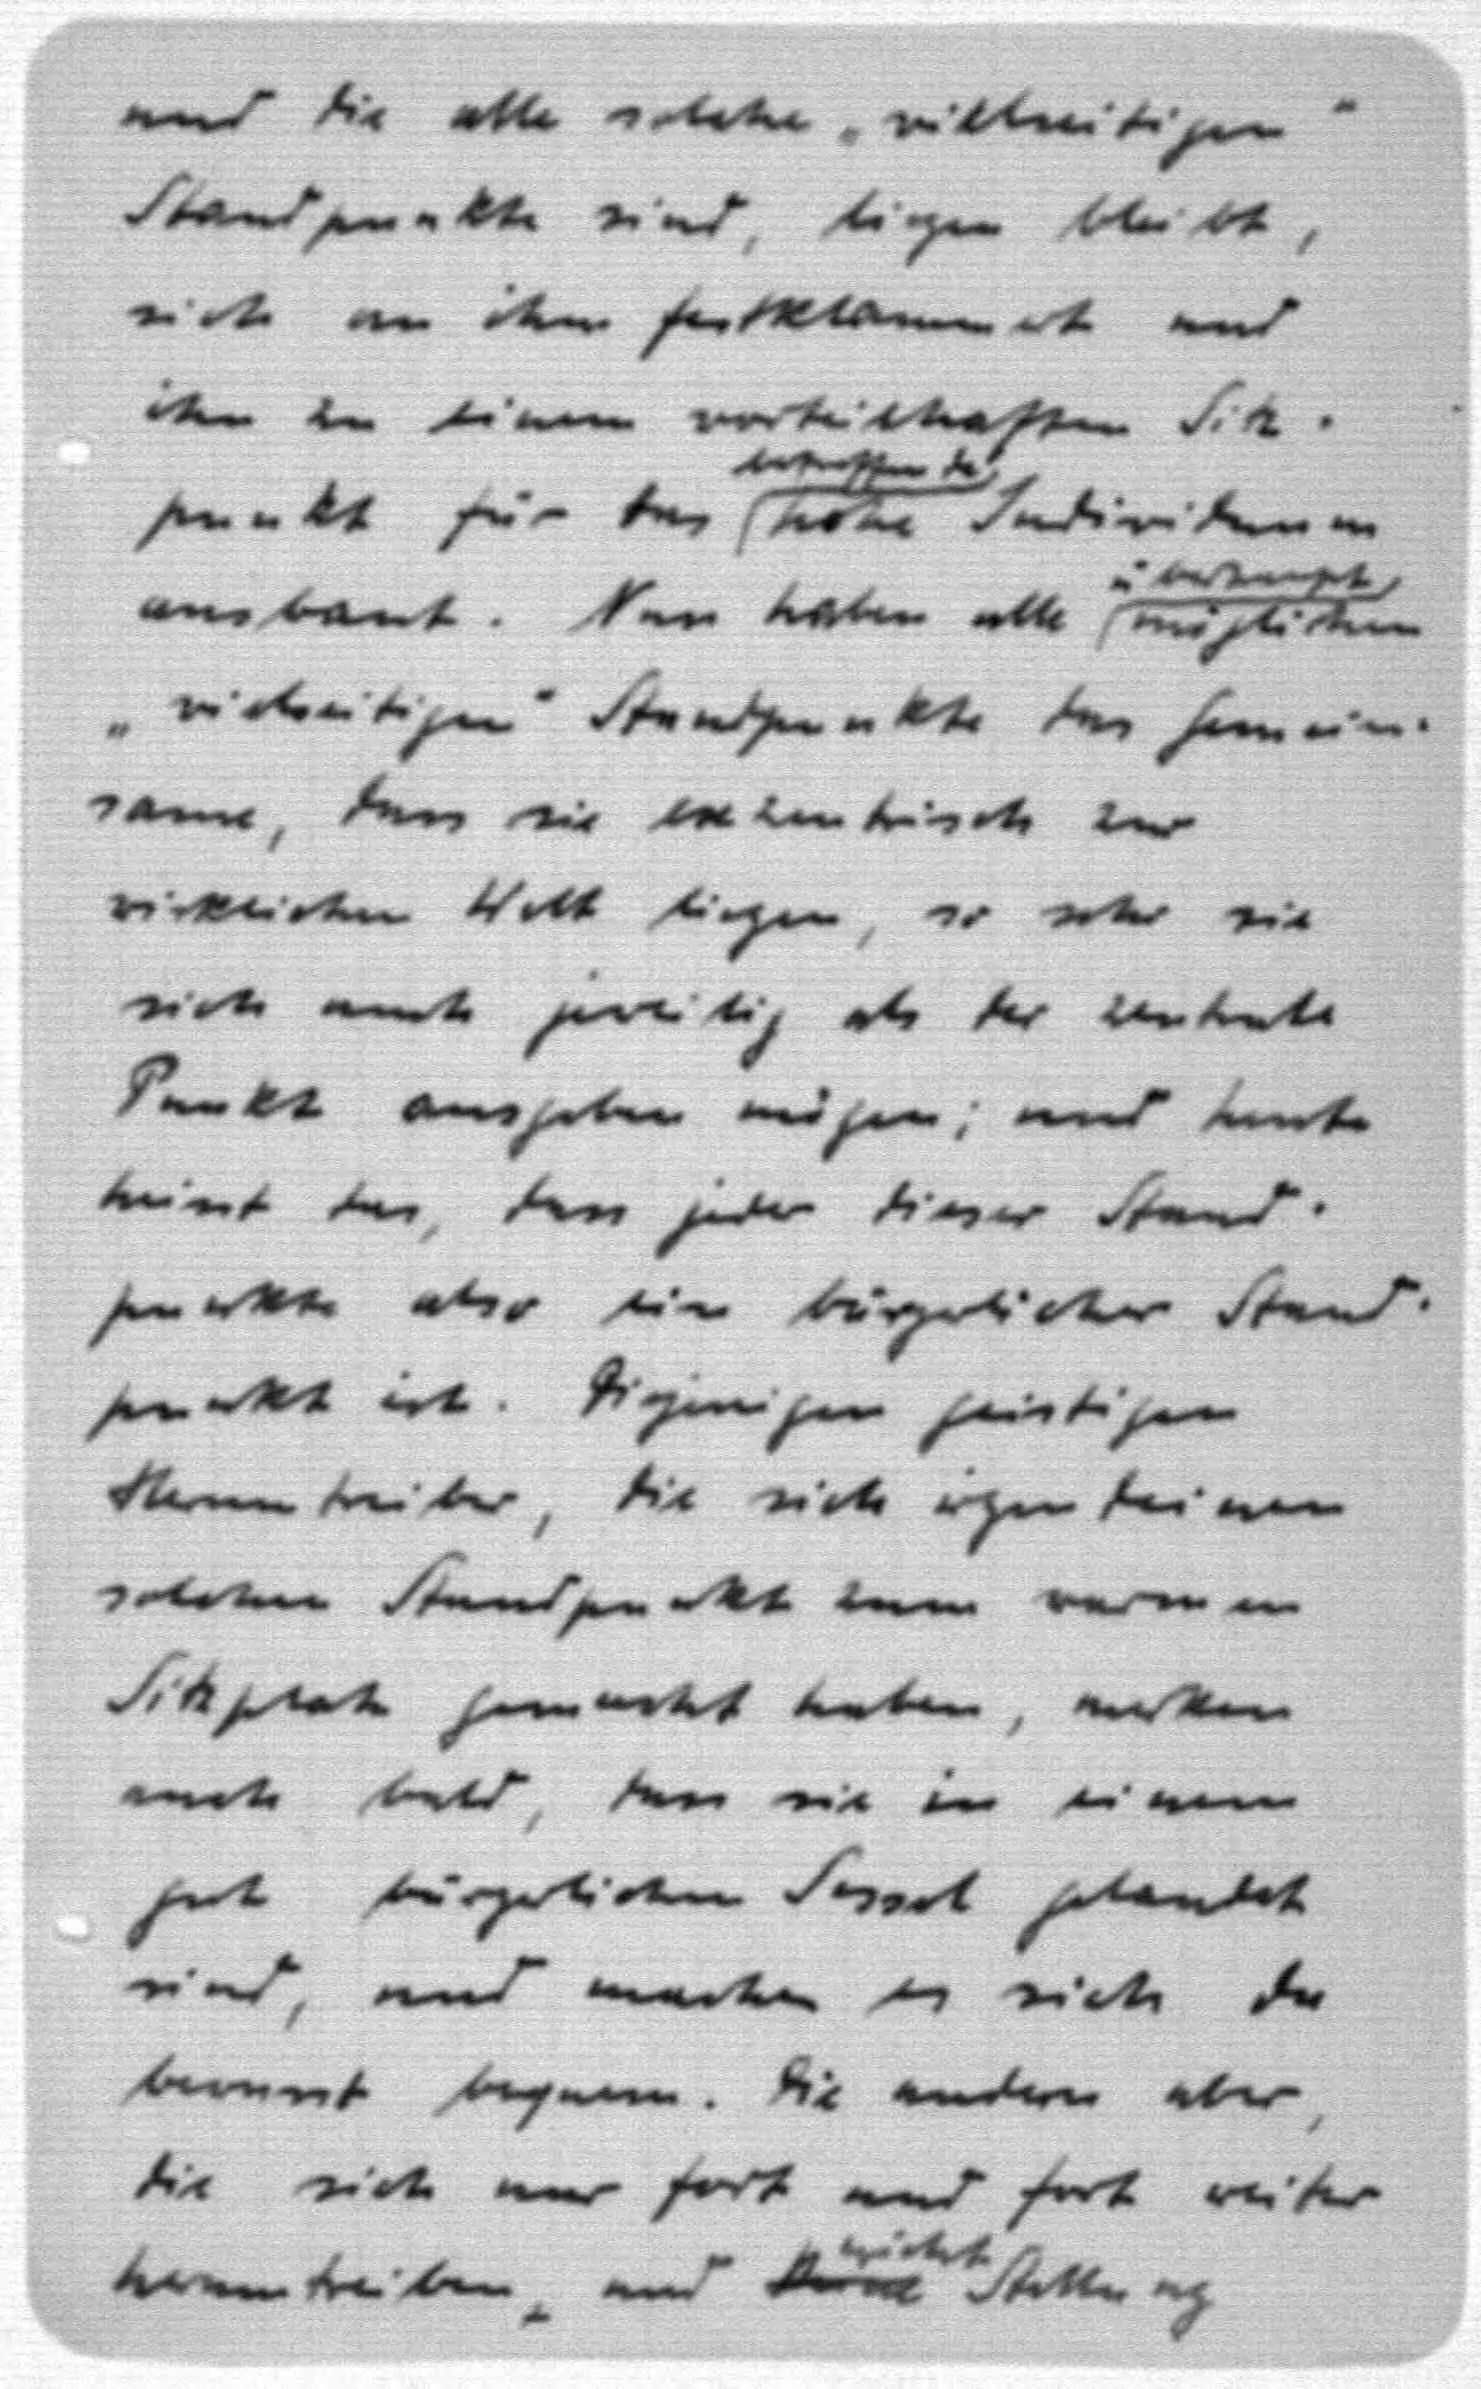 und die alle solche „vielseitigen“
Standpunkte sind, liegen bleibt,
sich an ihm festklammert und
ihn zu einem vorteilhaften Sitz-
betreffende
punkt für das hohe Individuum
überhaupt
ausbaut. Nun haben alle möglichen
„vielseitigen“ Standpunkte das Gemein-
same, dass sie exzentrisch zur
wirklichen Welt liegen, so sehr sie
sich auch jeweilig als der zentrale
Punkt ausgeben mögen; und heute
heisst das, dass jeder dieser Stand-
punkte also ein bürgerlicher Stand-
punkt ist. Diejenigen geistigen
Herumtreiber, die sich irgendeinen
solchen Standpunkt zum warmen
Sitzplatz gemacht haben, merken
auch bald, dass sie in einem
gut bürgerlichen Sessel gelandet
sind, und machen es sich da
bewusst bequem. Die andern aber,
die sich nur fort und fort weiter
herumtreiben, und Stellung